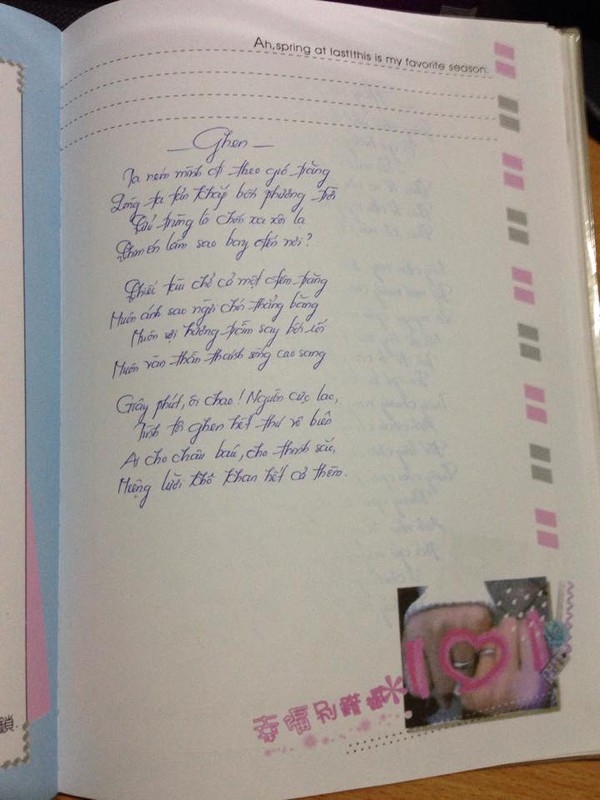 Ah,spring at last!this is my favorite season.
— Ghen —
Ta ném mình đi theo gió trăng
Lòng ta tản khắp bốn phương trời
Cửu trùng là chốn xa xôn lạ
Chim én làm sao bay đến nơi?
Chiếc tàu chở cả một đêm trăng
Muôn ánh sao ngời chói thẳng băng
Muôn sợi hương trầm say bối rối
Muôn vàn thần thánh sống cao sang
Giây phút, ôi chao! Nguồn cực lạc,
Tình tôi ghen hết thú vô biên
Ai cho châu báu, cho thinh sắc,
Miệng lưỡi khô khan hết cả thèm.
幸福
鎖.